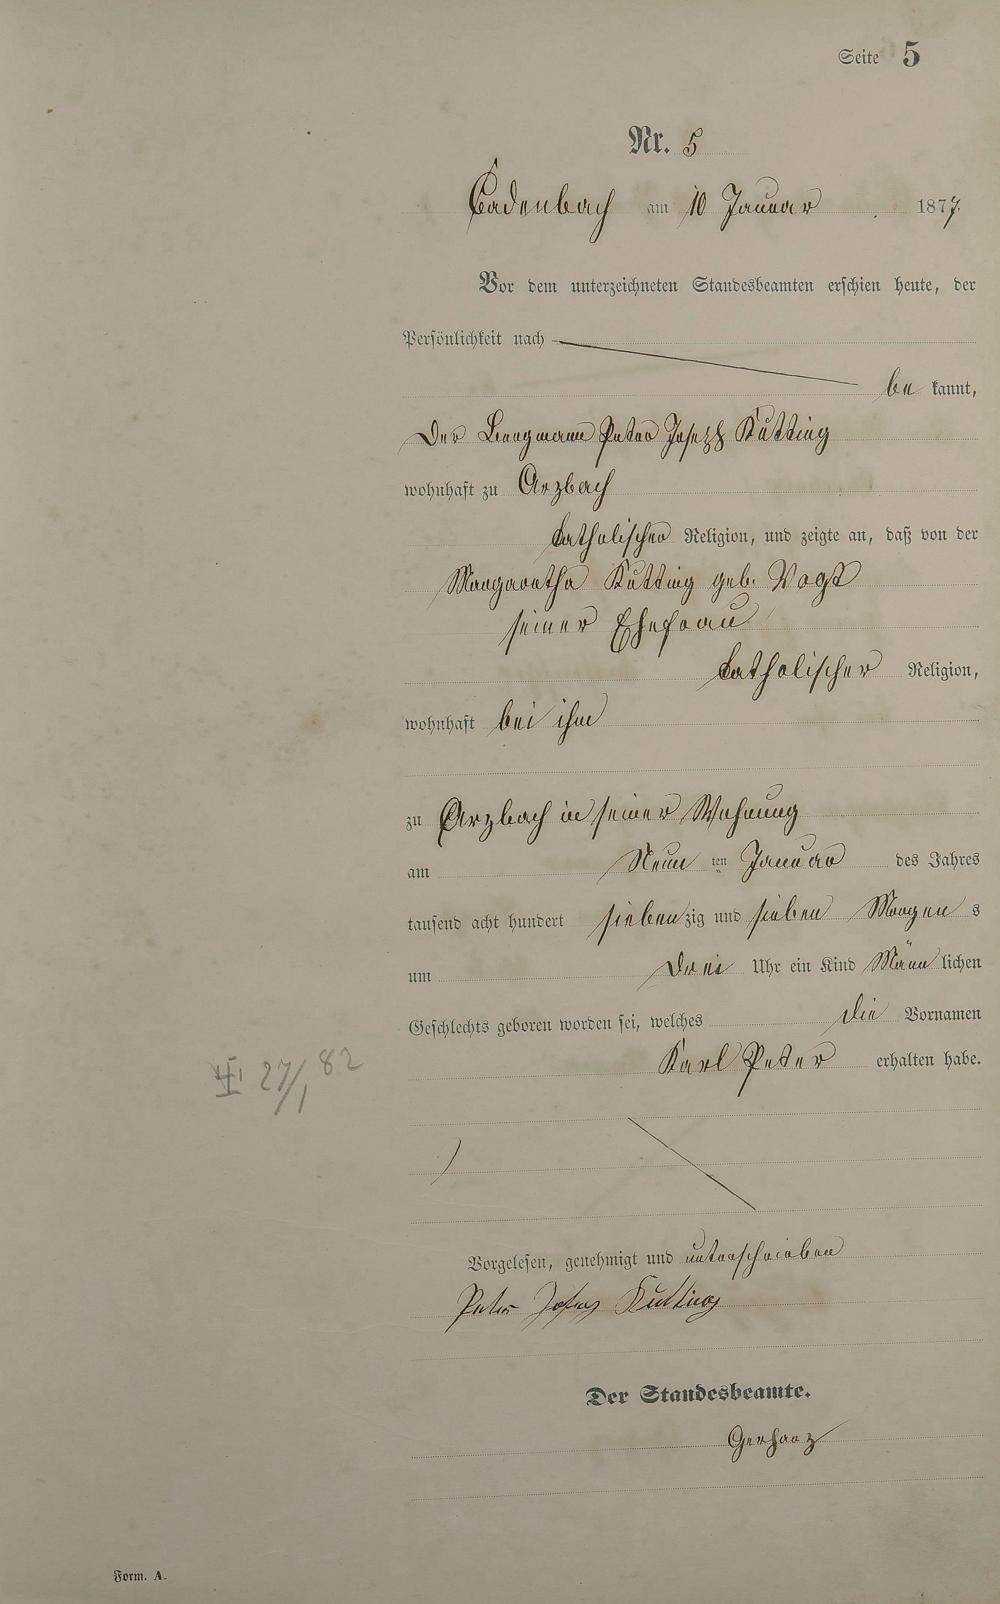 Seite 5
Nr. 5
Cadenbach am 10 Januar 1877.
Vor dem unterzeichneten Standesbeamten erschien heute, der
Persönlichkeit nach
be kannt,
Der Bergmann Peter Joseph Kutting
wohnhaft zu Arzbach
katholischer Religion, und zeigte an, daß von der
Margaretha Kutting geb. Vogt
seiner Ehefrau
katholischer Religion,
wohnhaft bei ihm
zu Arzbach in seiner Wohnung
am Neun ten Januar des Jahres
tausend acht hundert siebenzig und sieben Morgen s
um drei Uhr ein Kind Männ lichen
Geschlechts geboren worden sei, welches die Vornamen
Karl Peter erhalten habe.
27/1 82
Vorgelesen, genehmigt und unterschrieben
Peter Josep Kutting
Der Standesbeamte.
Gerharz
Form. A.